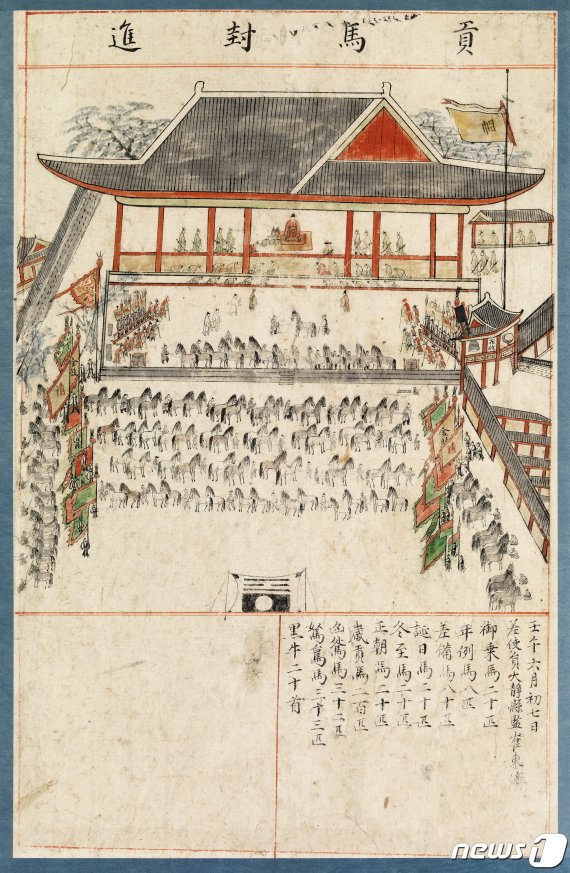 貢馬封進
壬午六月初七日
差使員大靜縣監崔東
御乘馬二十匹
年例馬八匹
差備馬八十匹
誕日馬二十匹
冬至馬二十匹
正朝馬二十匹
歲貢馬二百匹
馬三十二匹
馬三十三匹
黑牛二十首
news1